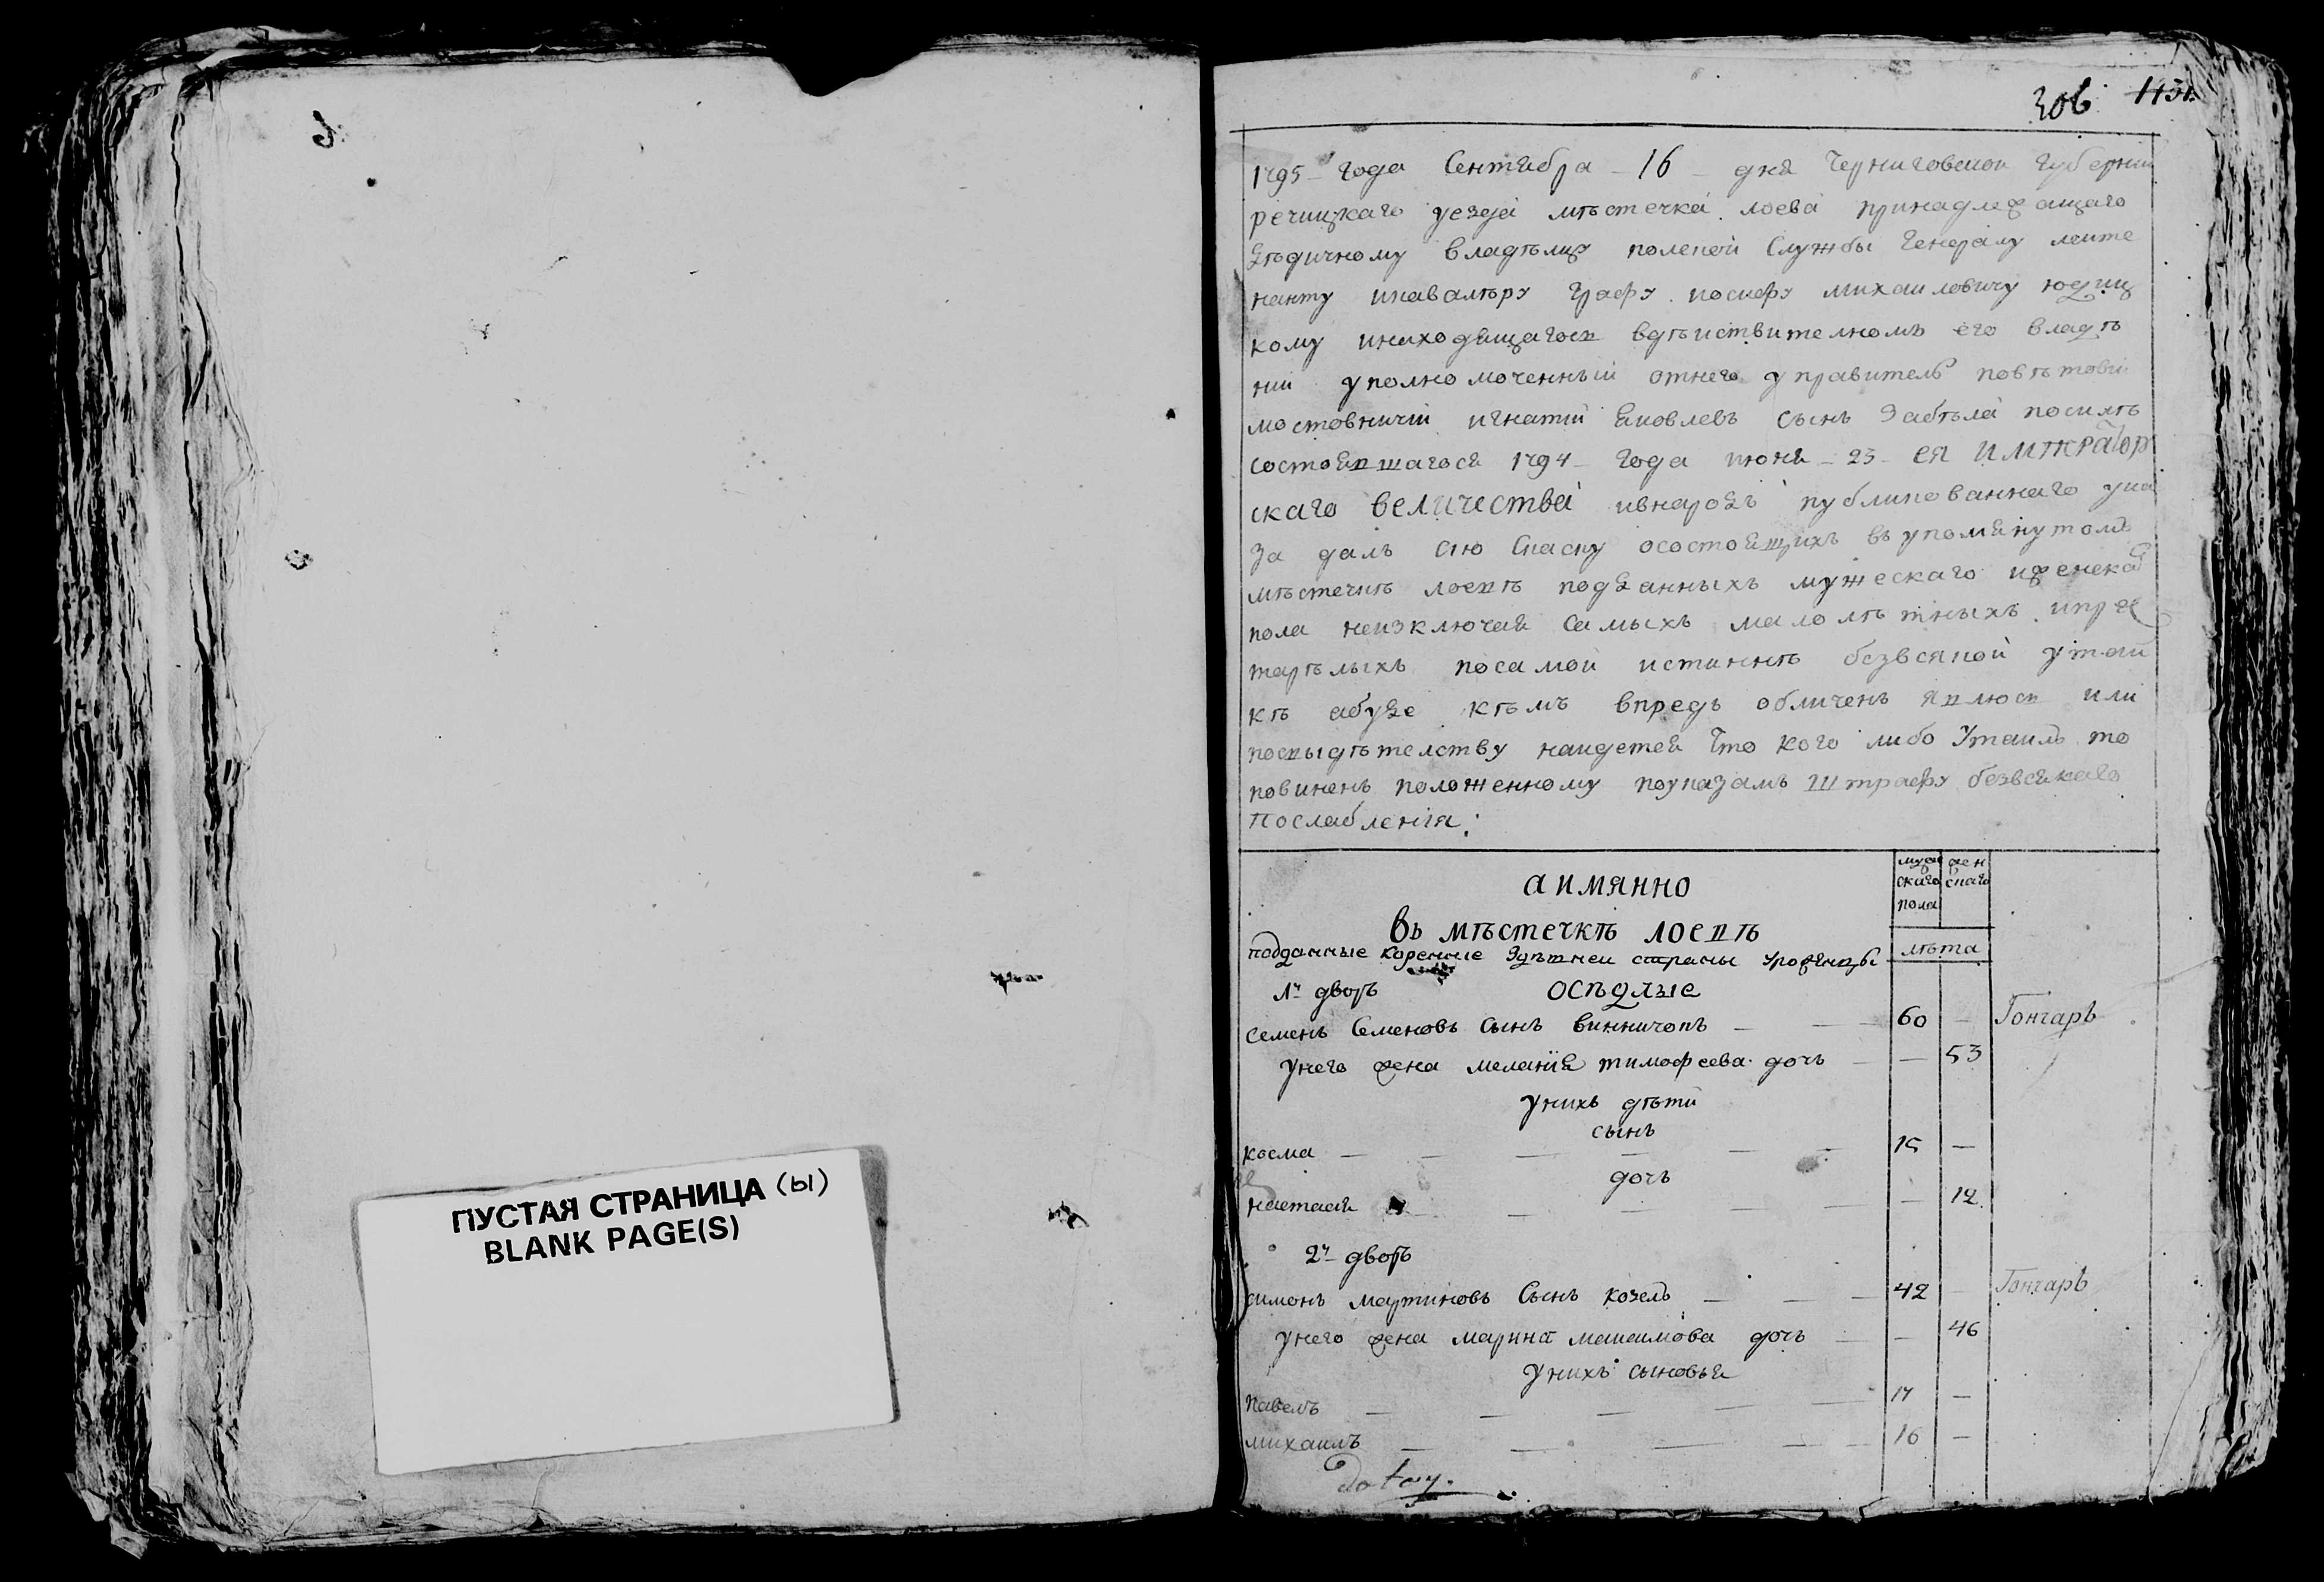 ПУСТАЯ СТРАНИЦА (ы)
BLANK PAGE(S)
306 1131
1795 года Сентября 16 дня Черниговской губернии
речицкаго уезда мѣстечка лоева принадлежащаго
ѣдичному владѣлцу полской Службы Генералу леите
нанту икавалѣру Графу иосифу михаиловичу юдиц
кому инаходящагося вдѣиствителномъ его владѣ
нии уполномоченный отнего управитель повѣтовій
мостовничій игнатій яковлевъ сынъ Забѣла посилѣ
состоявшагося 1794 года июня 23 ея император
скаго величества ивнародъ публикованнаго ука
за далъ сию Сказку осостоящихъ въ упомянутомъ
мѣстечкѣ лоевѣ подданныхъ мужескаго иженска
пола неизключая самыхъ малолѣтныхъ ипрес
тарѣлыхъ посамой истиннѣ безвсякой утай
кѣ абуде кѣмъ впредь обличенъ явлюсь или
посвыдѣтелству наидется что кого либо Утаилъ то
повиненъ положенному поуказамъ Штрафу безвсякаго
Послабленія:
муж ен
скаго скаго
пола
аимянно
въ мѣстечкѣ лоевѣ
подданные Коренние Здѣшнеи страны Уроженцы
лѣта
1й дворъ осѣдлые
семенъ Семеновъ сынъ винничокъ 60 — Гончаръ
унего жена меланія тимофеева дочъ — 53
унихъ дѣти
сынъ
косма 15 —
дочъ
настася — 12
2й дворъ
симонъ мартиновъ Сынъ козелъ 42 — Гончаръ
унего жена марина макаимова дочъ — 46
Унихъ сыновья
павелъ 17 —
михаилъ 16 —